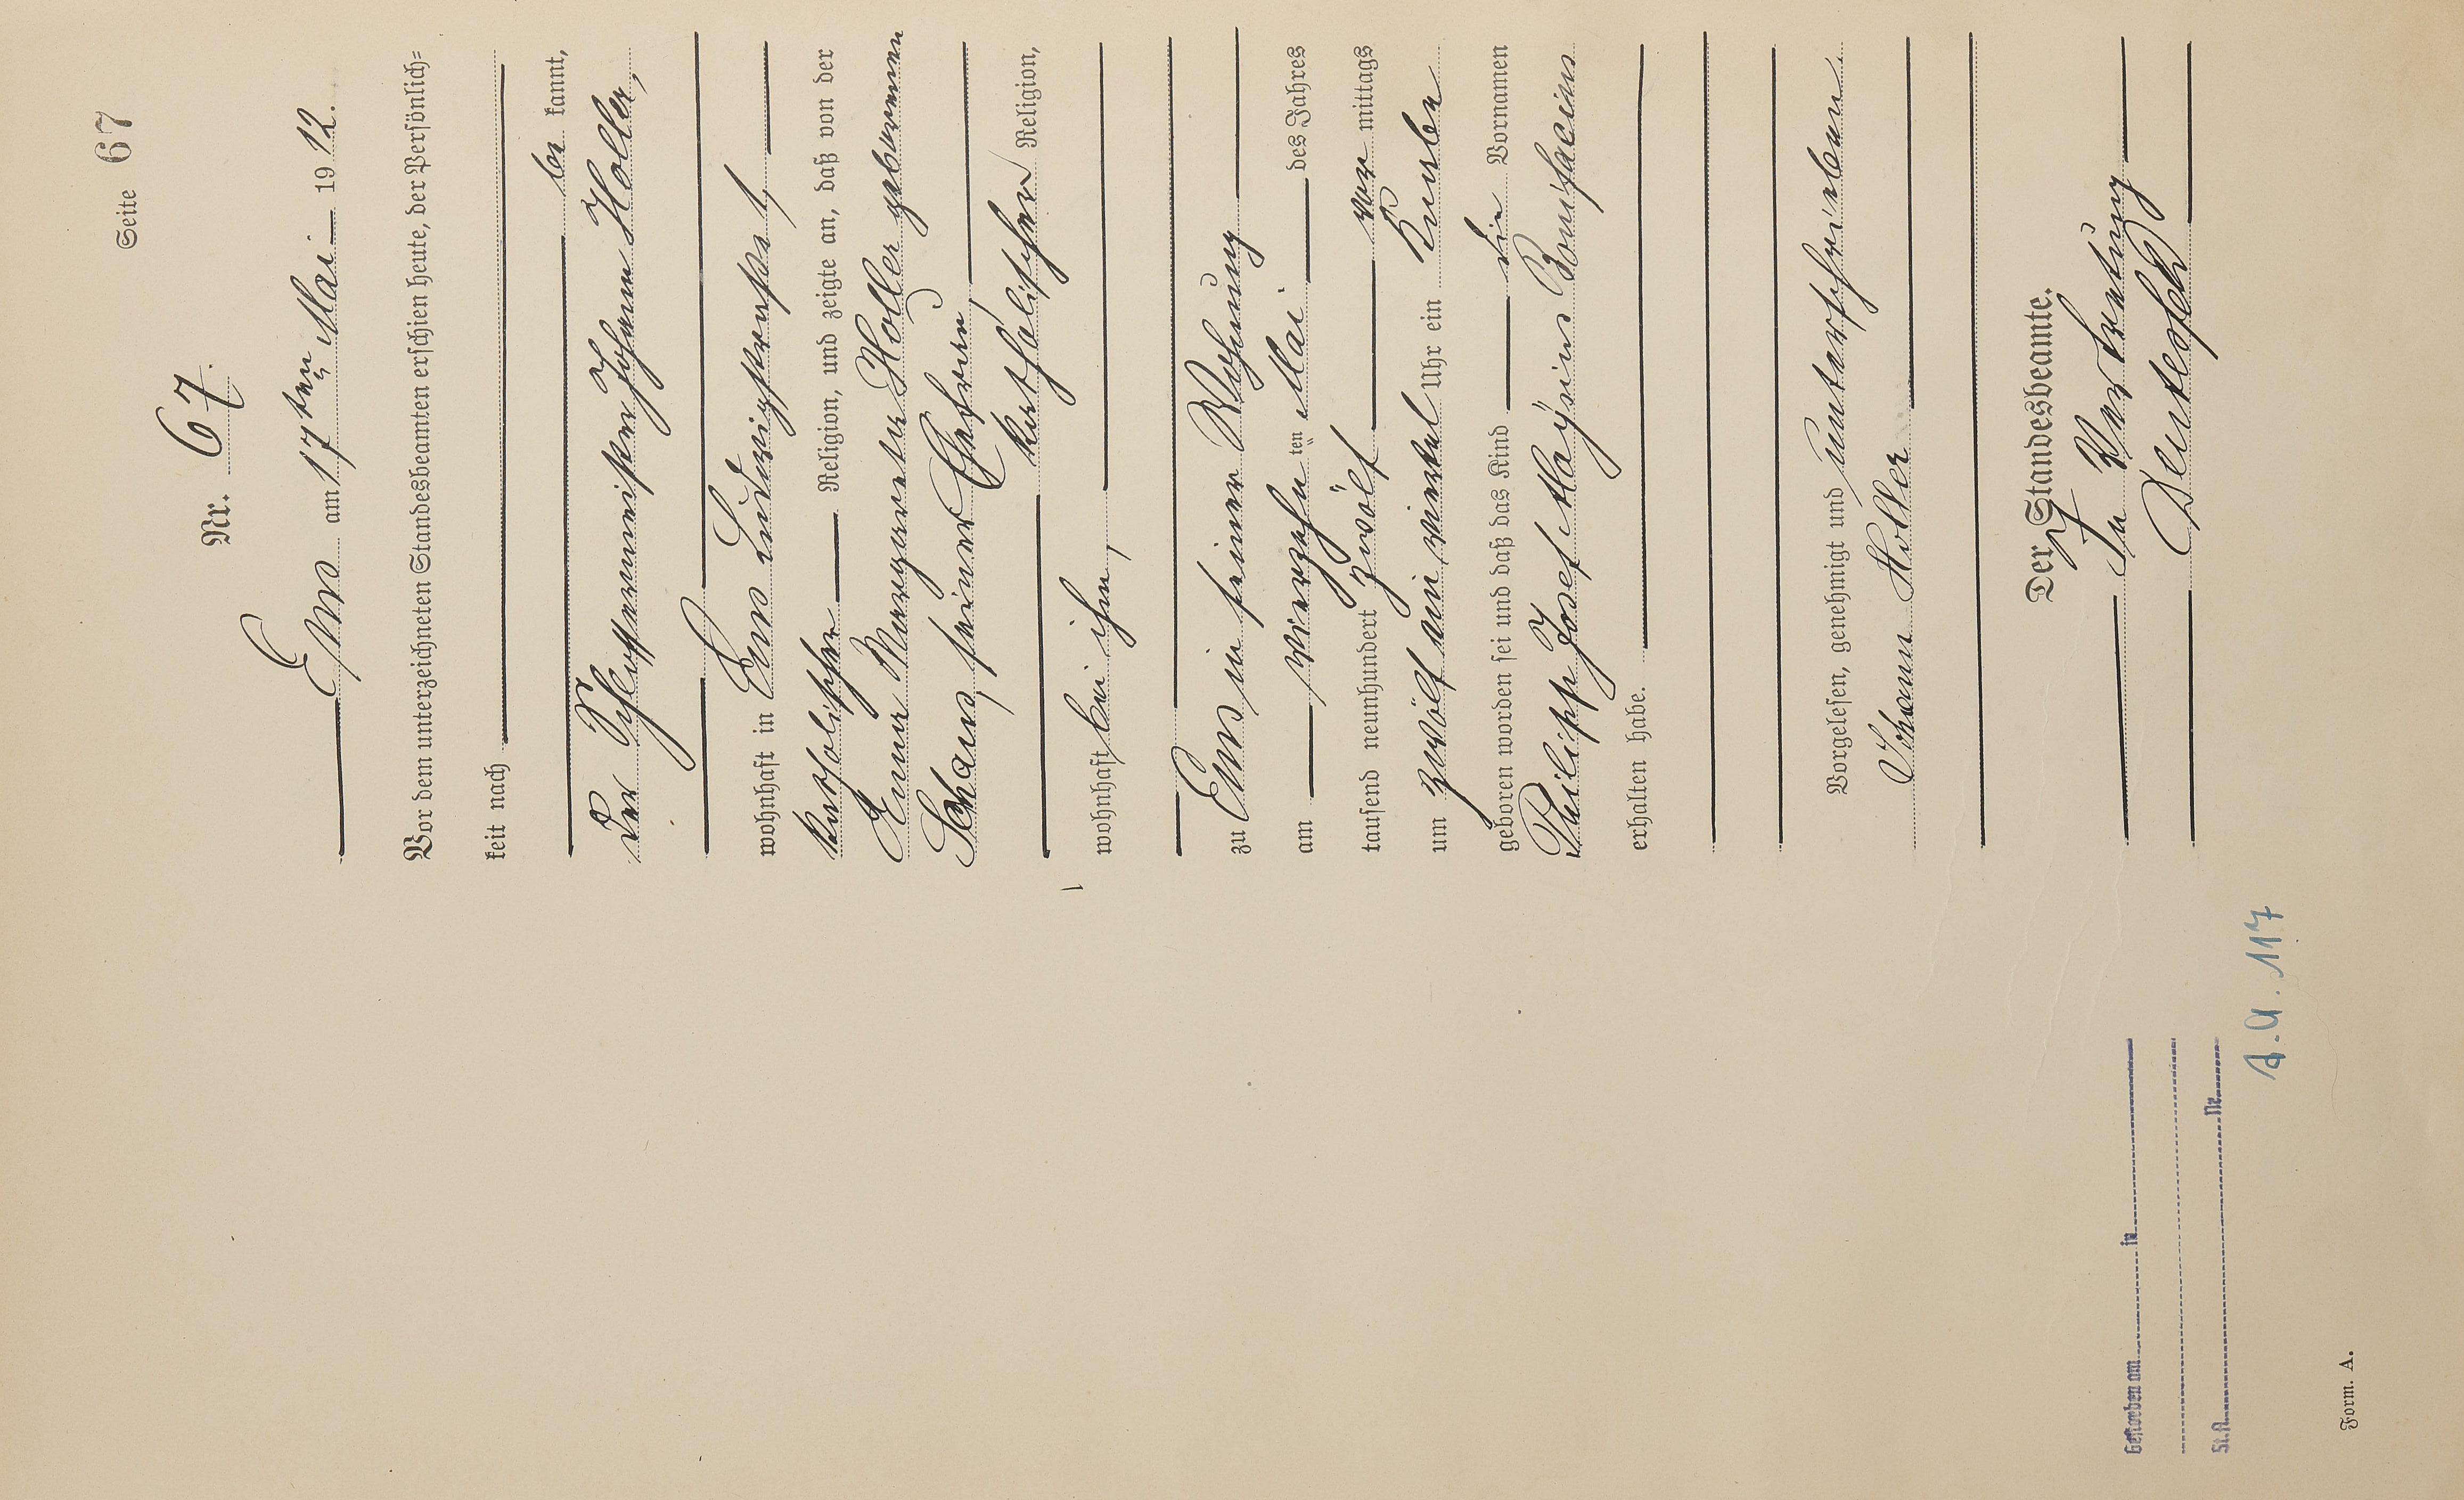 Seite 67
Nr. 67.
Ems am 17ten Mai 1912.
Vor dem unterzeichneten Standesbeamten erschien heute, der Persönlich=
keit nach
be kannt,
der Schlossermeister Johann Holler,
wohnhaft in Ems Ludwigstraße 1,
katholischer Religion, und zeigte an, daß von der
Anna Margareta Holler geborenen
Schaus, seiner Ehefrau,
katholischer Religion,
wohnhaft bei ihm,
zu Ems in seiner Wohnung
am vierzehn ten Mai des Jahres
tausend neunhundert zwölf vor mittags
um zwölf ein viertel Uhr ein Knabe
geboren worden sei und daß das Kind die Vornamen
Philipp Josef Bonifacius
erhalten habe.
Vorgelesen, genehmigt und unterschrieben.
Johann Holler
Der Standesbeamte.
In Vertretung
Gestorben am in
St.A. Nr.
A. 117
Form. A.